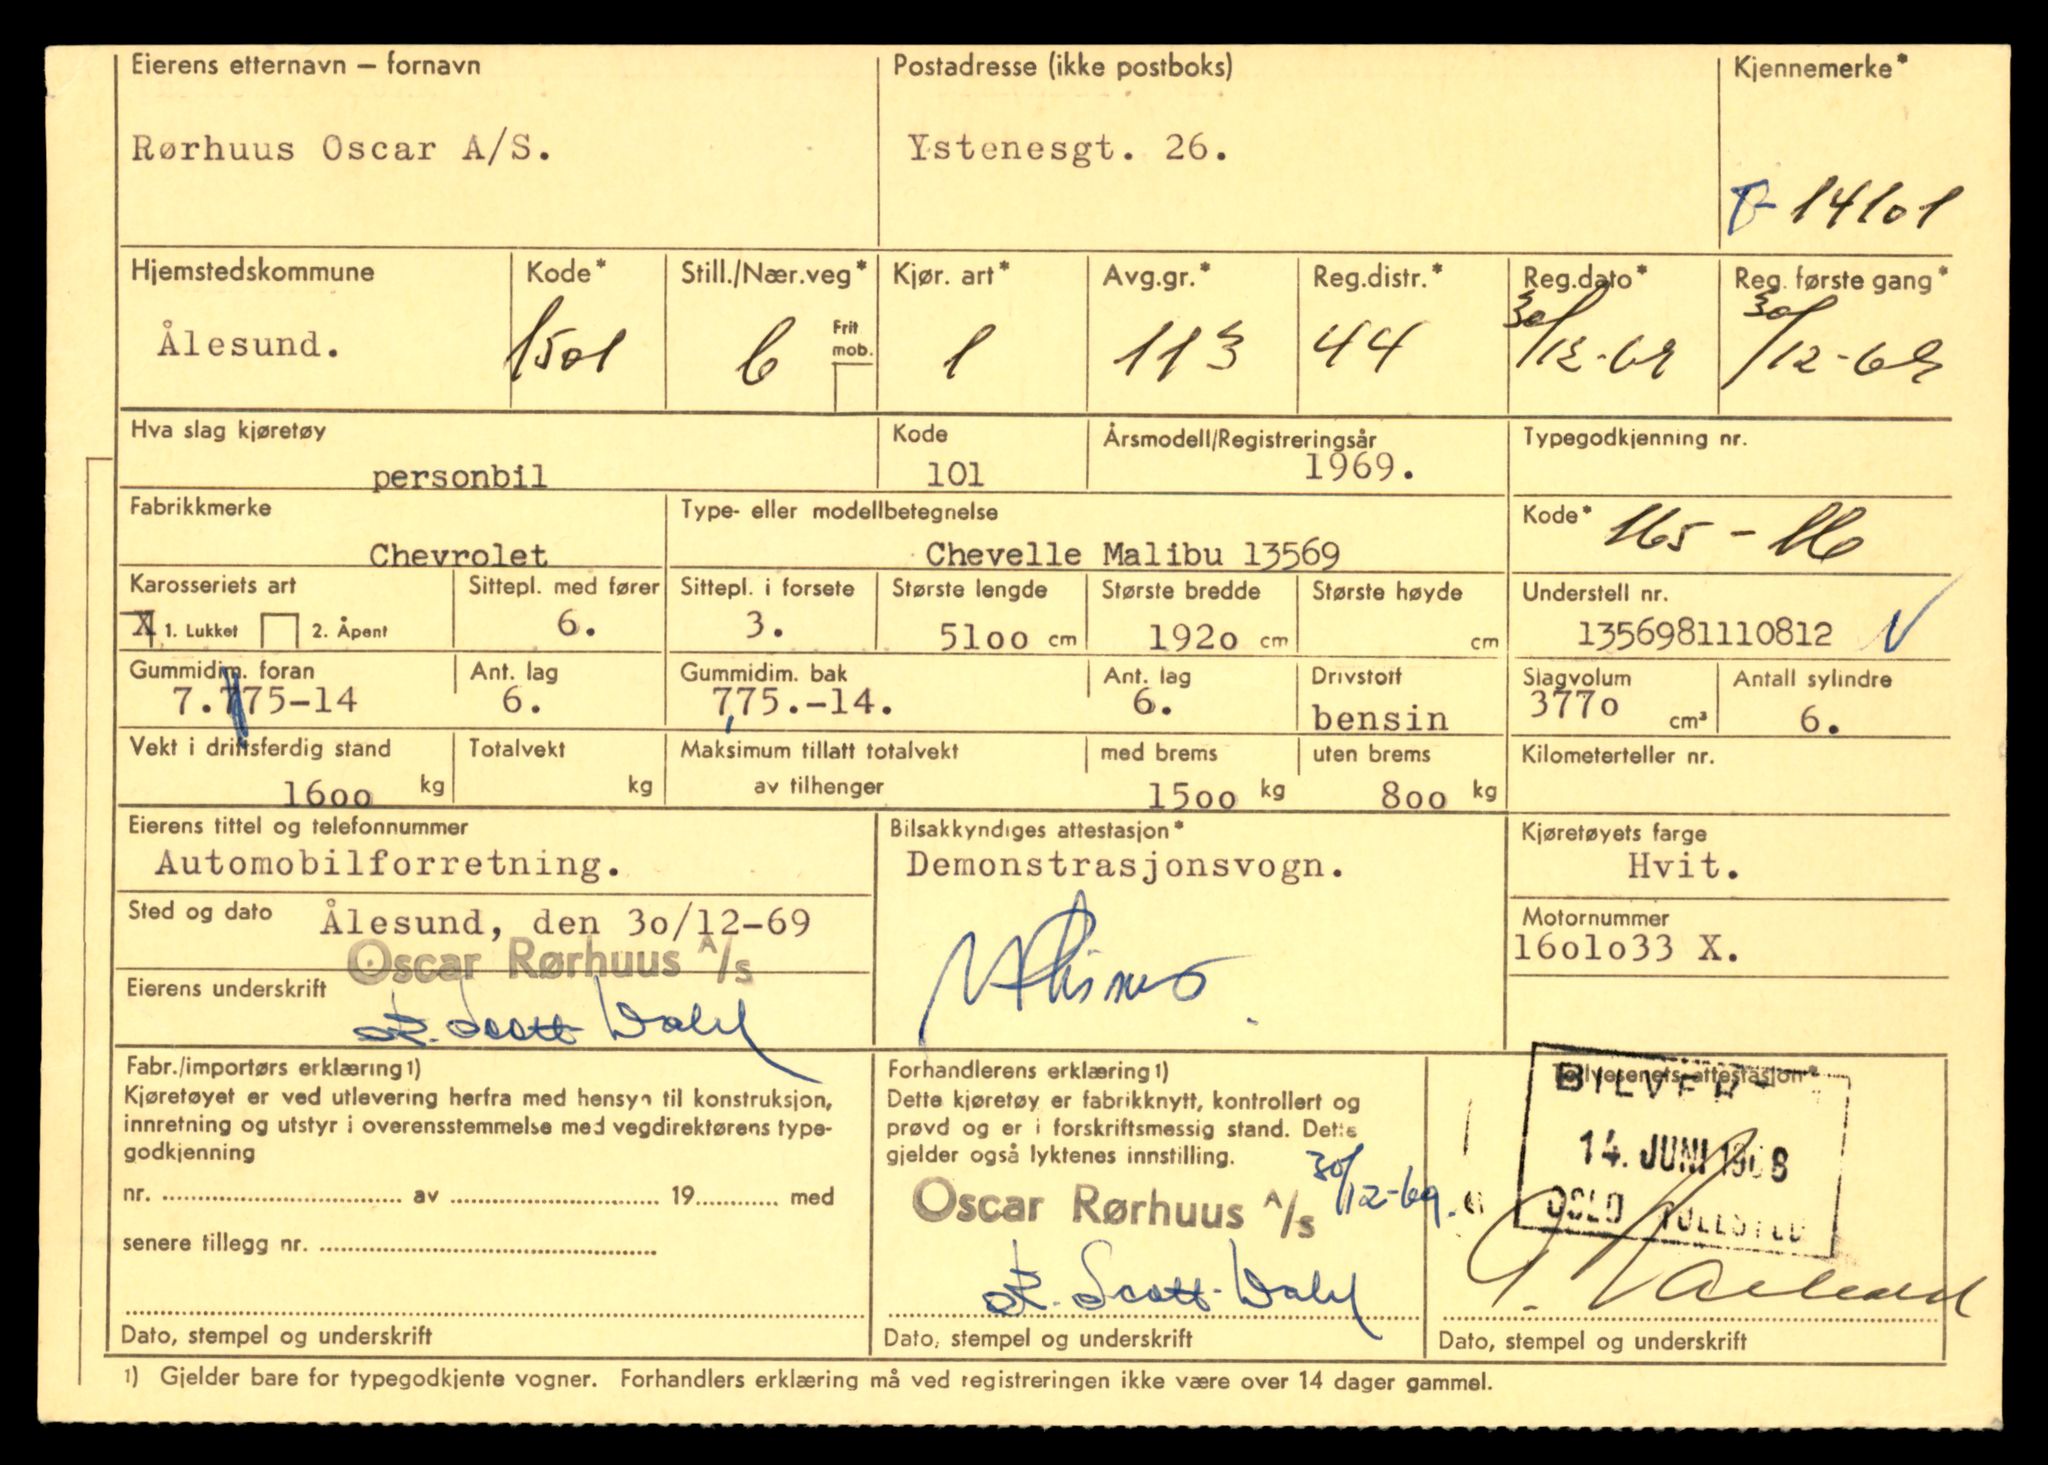 Eierens etternavn – fornavn
Rørhuus Oscar A/S.
Postadresse (ikke postboks)
Ystenesgt. 26.
Kjennemerke*
14101
Hjemstedskommune
Ålesund.
Kode*
1501
Still./Nær.veg*
6
Frit mob.
Kjør. art*
1
Avg.gr.*
113
Reg.distr.*
44
Reg.dato*
30/12-69
Reg. første gang*
30/12-69
Hva slag kjøretøy
personbil
Kode
101
Årsmodell/Registreringsår
1969.
Typegodkjenning nr.
Fabrikkmerke
Chevrolet
Type- eller modellbetegnelse
Chevelle Malibu 13569
Kode*
165 - 116
Karosseriets art
X 1. Lukket 2. Åpent
Sittepl. med fører
6.
Sittepl. i forsete
3.
Største lengde
5100 cm
Største bredde
1920 cm
Største høyde
cm
Understell nr.
1356981110812
Gummidim. foran
7.775-14
Ant. lag
6.
Gummidim. bak
7,75.-14.
Ant. lag
6.
Drivstoff
bensin
Slagvolum
3770 cm³
Antall sylindre
6.
Vekt i driftsferdig stand
1600 kg
Totalvekt
kg
Maksimum tillatt totalvekt
av tilhenger
med brems
1500 kg
uten brems
800 kg
Kilometerteller nr.
Eierens tittel og telefonnummer
Automobilforretning.
Bilsakkyndiges attestasjon*
Demonstrasjonsvogn.
Kjøretøyets farge
Hvit.
Sted og dato
Ålesund, den 30/12-69
Oscar Rørhuus A/S
Motornummer
1601033 X.
Eierens underskrift
Scott-Dahl
Fabr./importørs erklæring 1)
Kjøretøyet er ved utlevering herfra med hensyn til konstruksjon,
innretning og utstyr i overensstemmelse med vegdirektørens type-
godkjenning
nr. av 19 med
senere tillegg nr.
Dato, stempel og underskrift
Forhandlerens erklæring 1)
Dette kjøretøy er fabrikknytt, kontrollert og
prøvd og er i forskriftsmessig stand. Dette
gjelder også lyktenes innstilling.
30/12-69.
Oscar Rørhuus A/S
Scott-Dahl
Dato, stempel og underskrift
Tollvesenets attestasjon*
14. JUNI 1968
OSLO TOLLSTED
Dato, stempel og underskrift
1) Gjelder bare for typegodkjente vogner. Forhandlers erklæring må ved registreringen ikke være over 14 dager gammel.